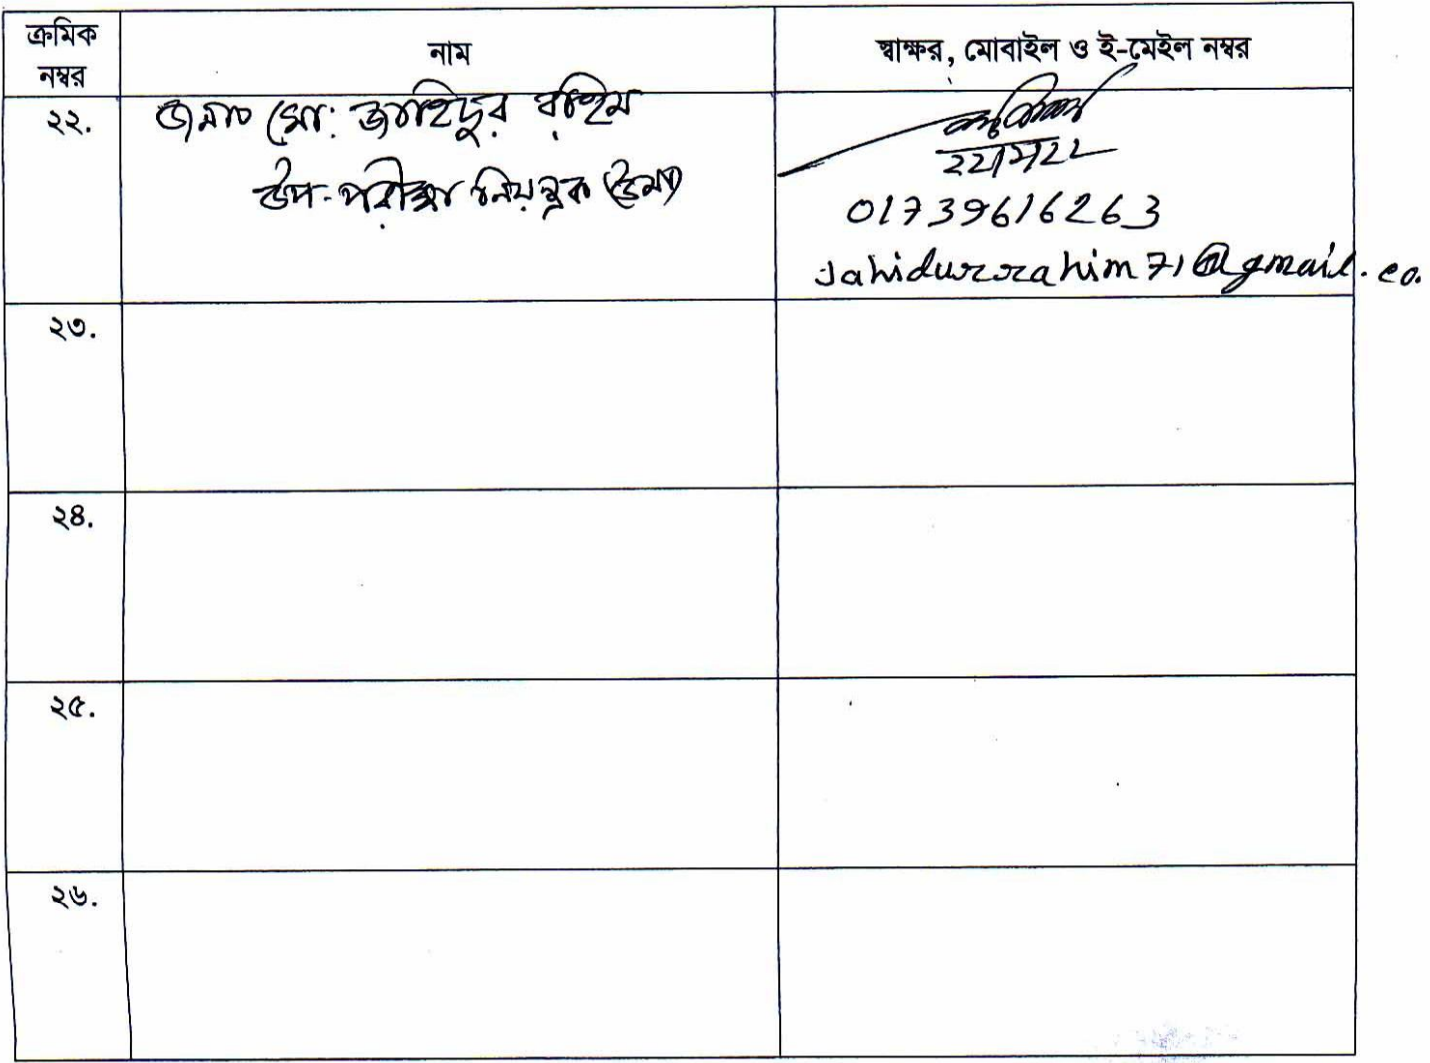 ক্রমিক নম্বর নাম স্বাক্ষর, মোবাইল ও ই-মেইল নম্বর
২২. জনাব মো: জাহিদুর রহিম
উপ-পরীক্ষা নিয়ন্ত্রক
01739616263
Jahidurrahim71@gmail.co.
২৩.
২৪.
২৫.
২৬.